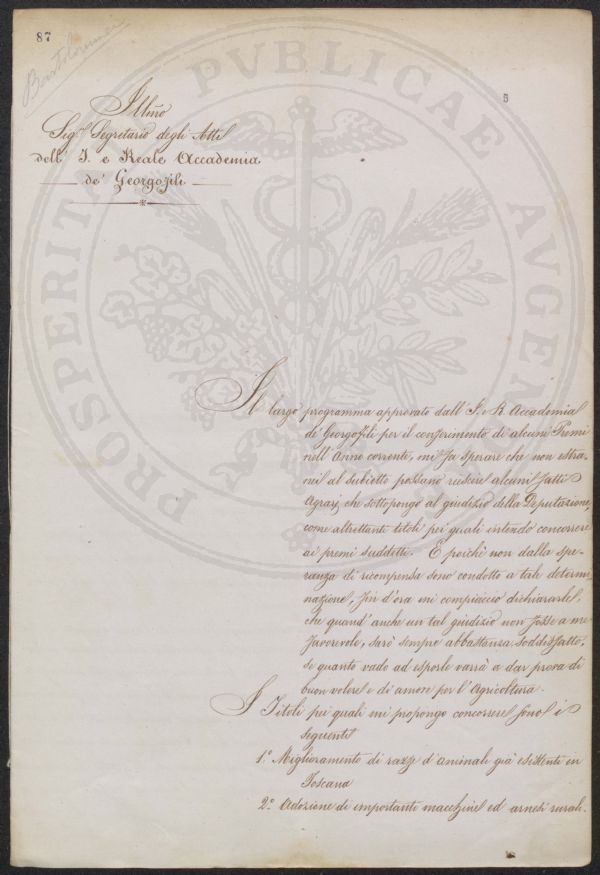 87
Bartolommei
5
Illmo
Sigr Segretario degli Atti
dell' I. e Reale Accademia
de' Georgofili
Il largo programma approvato dall' I. e R. Accademia
de' Georgofili per il conferimento di alcuni Premi
nell' Anno corrente, mi fa sperare che non estra-
nei al subietto possano riescire alcuni fatti
Agrarj che sottopongo al giudizio della Deputazione,
come altrettanti titoli pei quali intendo concorrere
ai premi suddetti. E poichè non dalla spe-
ranza di ricompensa sono condotto a tale determi-
nazione, fin d'ora mi compiaccio dichiararle,
che quand' anche un tal giudizio non fosse a me
favorevole, sarò sempre abbastanza soddisfatto,
se quanto vado ad esporle varrà a dar prova di
buon volere e di amore per l' Agricoltura.
I Titoli pei quali mi propongo concorrere sono i
seguenti
1.° Miglioramento di razze d'animali già esistenti in
Toscana
2.° Adozione di importanti macchine ed arnesi rurali.
PROSPERITATI PUBLICAE AUGENDAE